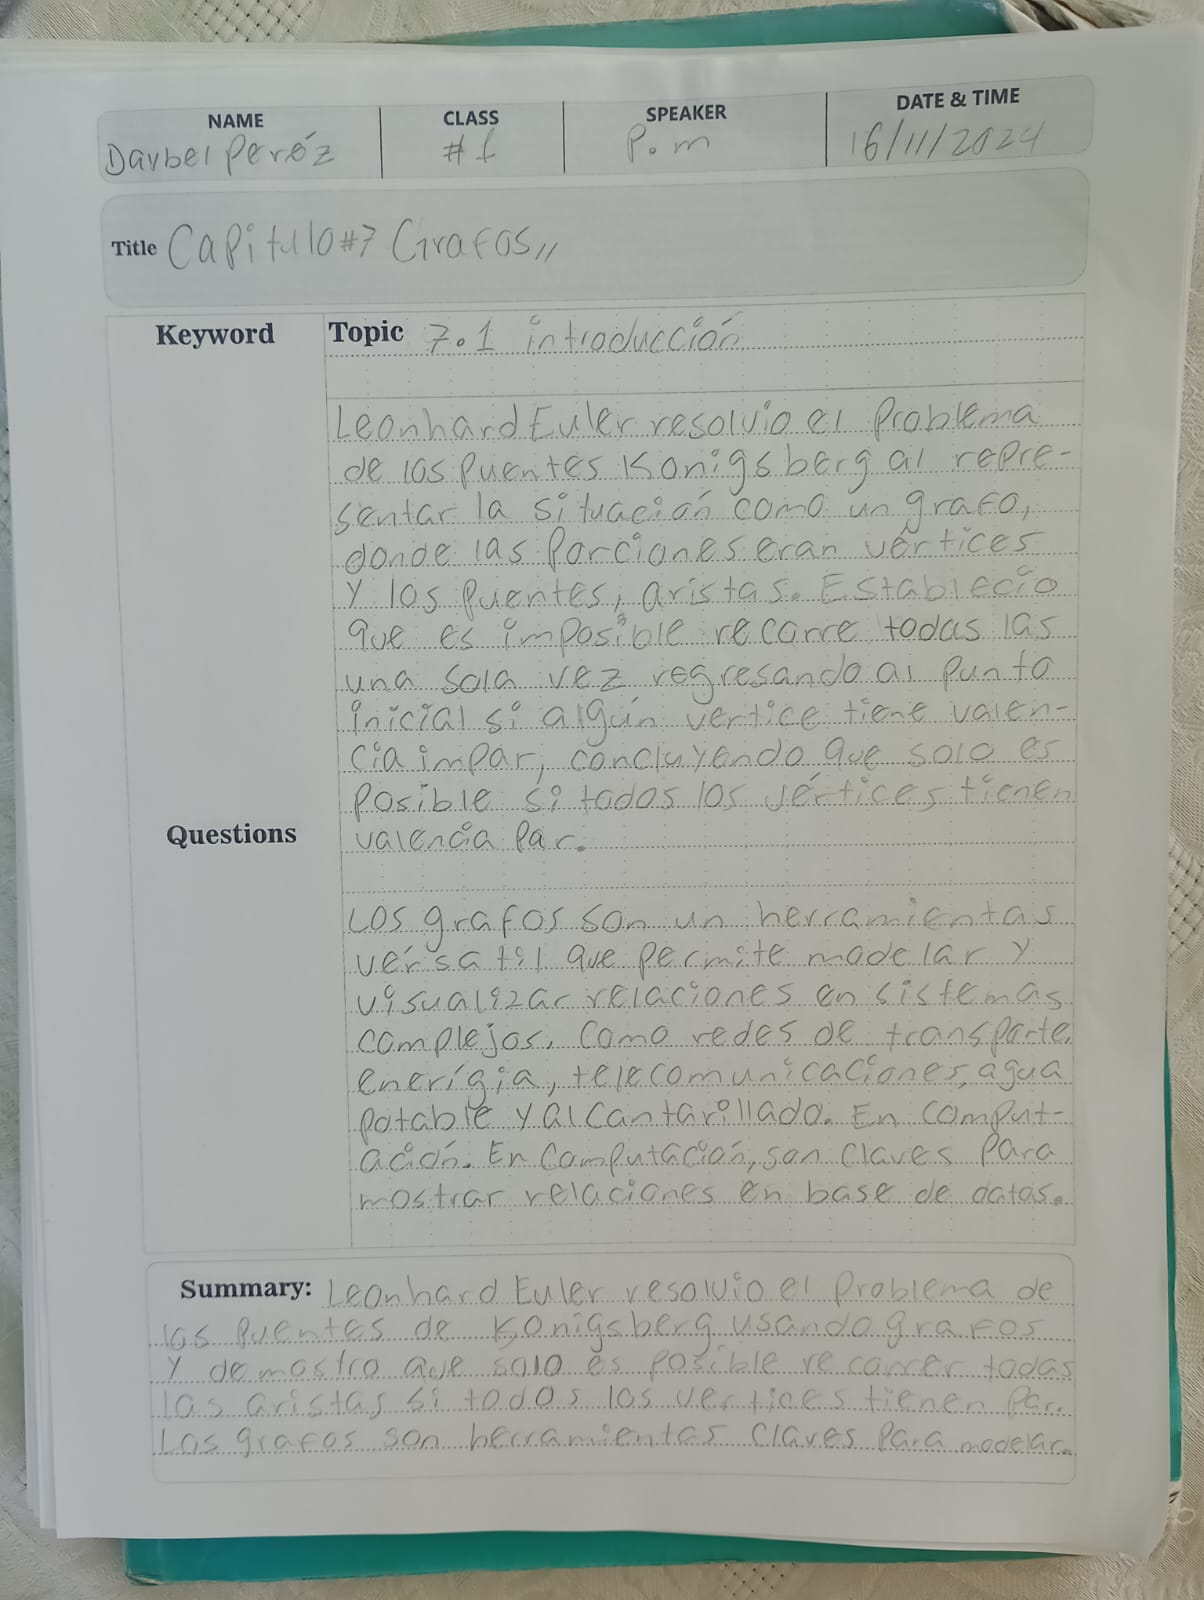 NAME CLASS SPEAKER DATE & TIME
Darbel Peróz #1 P.m 16/11/2024
Title Capitulo#7 Grafos,,
Keyword Topic 7.1 introducción
Leonhard Euler resolvio el Problema
de los Puentes Konigsberg al repre-
sentar la situación como un grafo,
donde las Porciones eran vértices
Y los Puentes, aristas. Establecio
que es imposible recorre todas las
una sola vez regresando al Punto
inicial si algún vertice tiene valen-
cia impar, concluyendo que solo es
Posible si todos los vértices tienen
Questions valencia Par.
Los grafos son un herramientas
vérsatil que permite modelar y
visualizar relaciones en sistemas
complejos. Como redes de transporte,
enerígia, telecomunicaciones, agua
potable y alcantarillado. En comput-
ación. En Computación, son Claves Para
mostrar relaciones en base de datos.
Summary: Leonhard Euler resolvio el Problema de
los Puentes de Konigsberg usando grafos
Y demostro que solo es posible recorrer todas
las aristas si todos los vertices tienen Par.
Los grafos son herramientas Claves Para modelar.